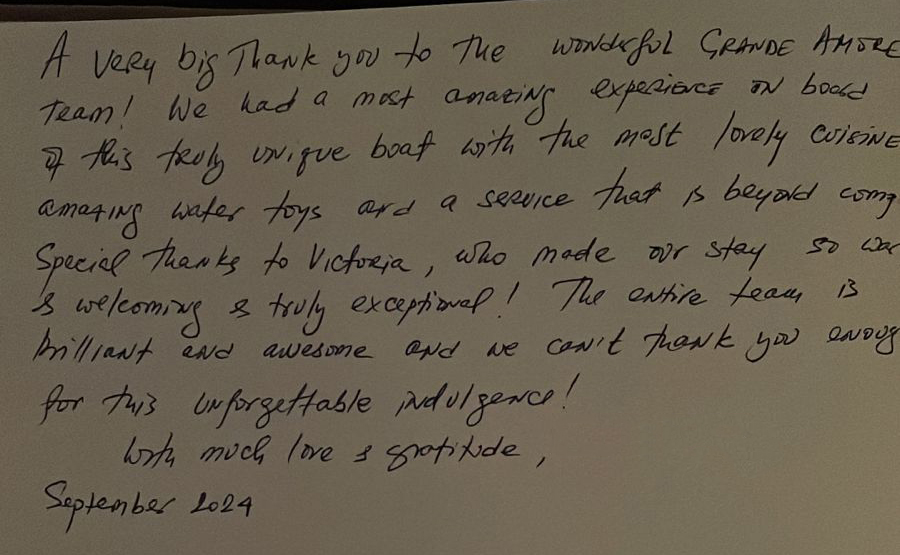 A very big Thank you to the wonderful GRANDE AMORE
team! We had a most amazing experience on board
of this truly unique boat with the most lovely cuisine
amazing water toys and a service that is beyond comp
Special thanks to Victoria, who made our stay so war
& welcoming & truly exceptional! The entire team is
brilliant and awesome and we can't thank you enoug
for this unforgettable indulgence!
With much love & gratitude,
September 2024